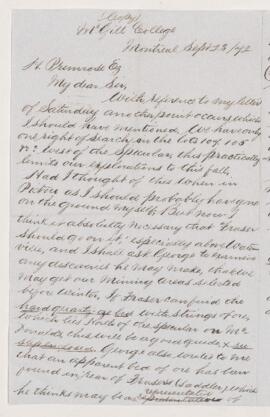 (Copy)
McGill College
Montreal Sept 23/72
H. Primrose Esq
My dear Sir,
With reference to my letter
of Saturday another point occurs which
I should have mentioned. We have only
one right of search on the lots 104 105
west of the Specular, this practically
limits our explorations to this fall.
Had I thought of this when in
Pictou as I should probably have gone
on the ground myself. But now I
think it absolutely necessary that Fraser
should go on it, especially above Water
ville, and I shall ask George to examine
any discoveries he may make, that we
may get our Mining areas selected
before Winter. If Fraser can find the
hard quartz bed with strings of ore,
which lies North of ore specular on Mc
Donalds this will be a good guide
George also writes to me
that an apparent bed of ore has been
found in rear of Frasers (Saddler) which
he thinks may be a representative of